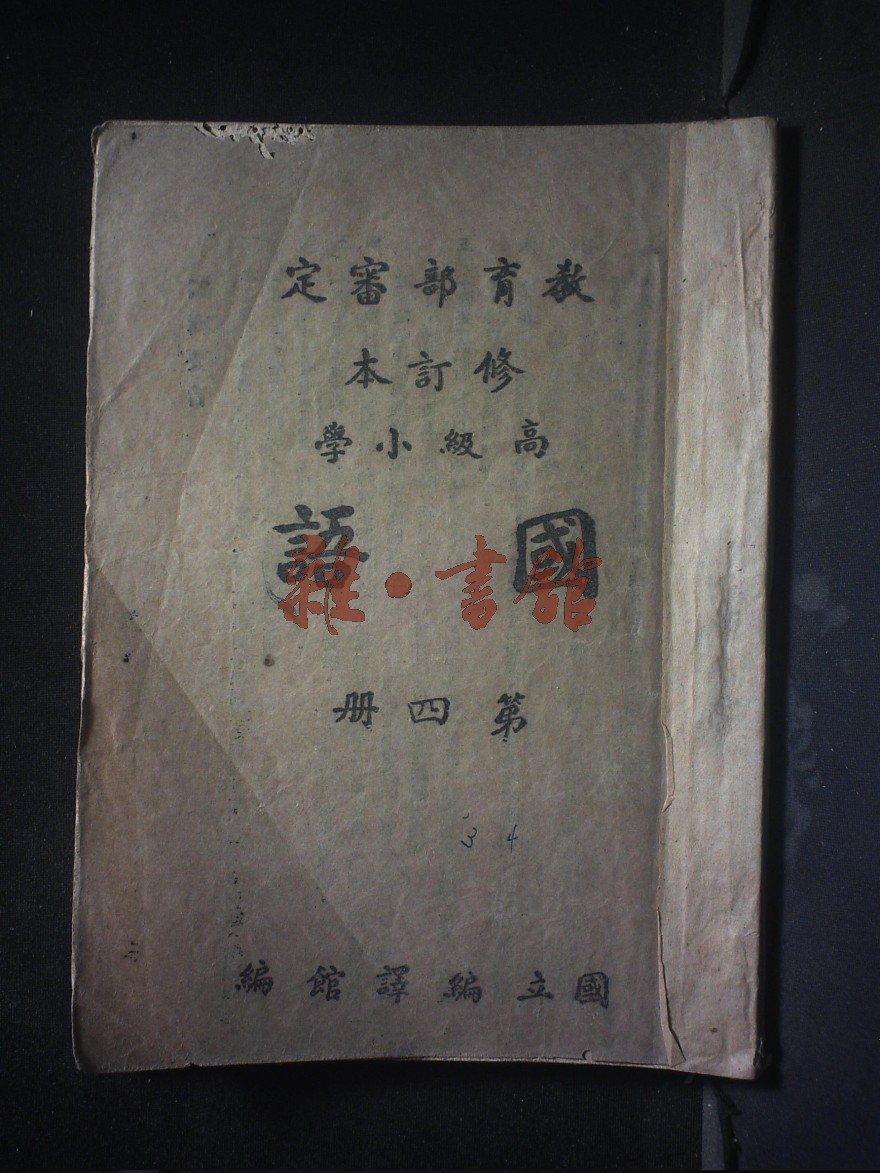 教育部審定
修訂本
高級小學
國語
雜·書館
第四册
3 4
國立編譯館編